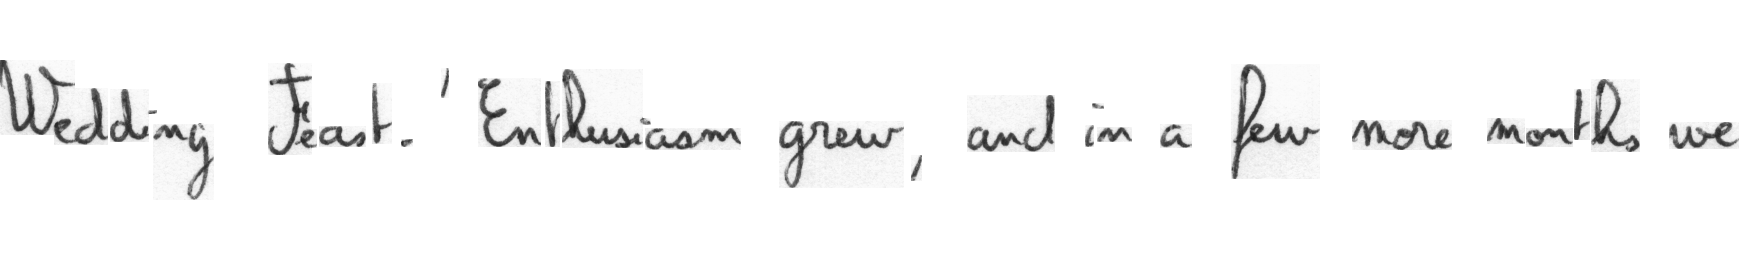 Wedding Feast.' Enthusiasm grew, and in a few more months we